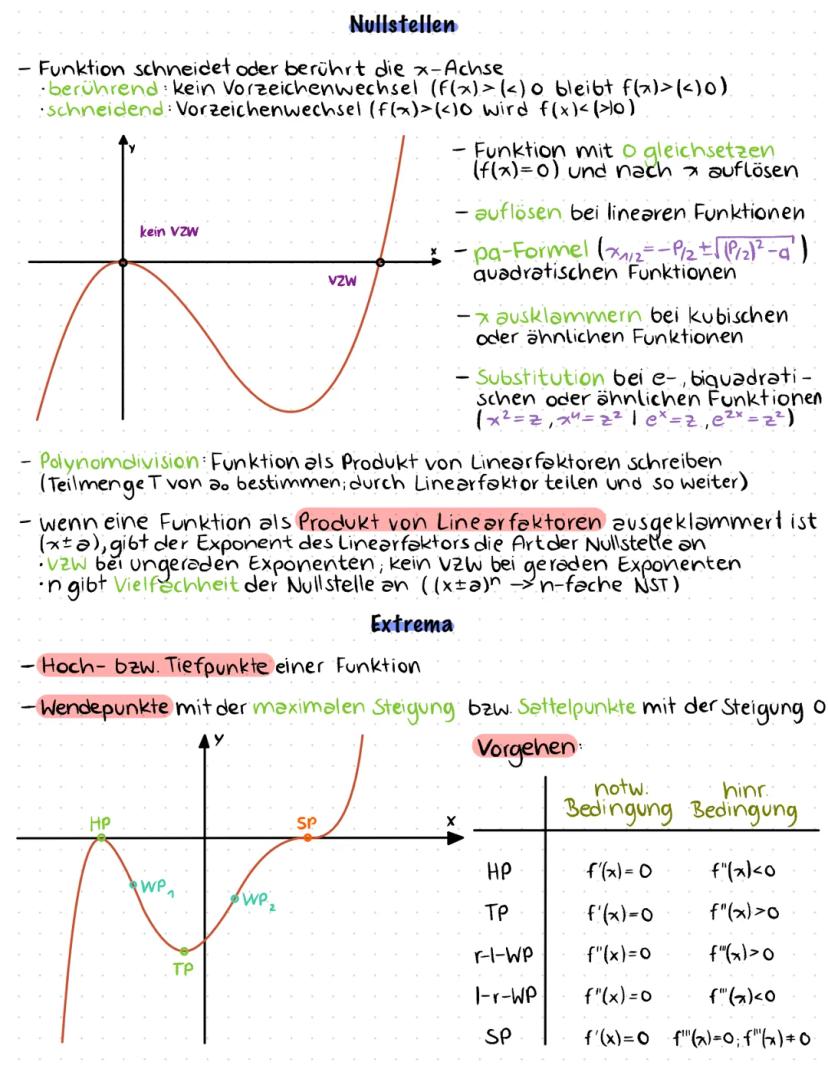 Nullstellen
- Funktion schneidet oder berührt die x-Achse
· berührend: kein Vorzeichenwechsel (f(x)>(<)0 bleibt f(x)>(<)0)
· schneidend: Vorzeichenwechsel (f(x)>(<)0 wird f(x)<(>)0)
y
kein VZW
x
VZW
- Funktion mit 0 gleichsetzen
(f(x)=0) und nach x auflösen
- auflösen bei linearen Funktionen
- pq-Formel (x₁/₂=-P/2±√((P/2)²-q))
quadratischen Funktionen
- x ausklammern bei kubischen
oder ähnlichen Funktionen
- Substitution bei e-, biquadrati-
schen oder ähnlichen Funktionen
(x²=z, x⁴=z² | eˣ=z, e²ˣ=z²)
- Polynomdivision: Funktion als Produkt von Linearfaktoren schreiben
(Teilmenge T von a₀ bestimmen; durch Linearfaktor teilen und so weiter)
- wenn eine Funktion als Produkt von Linearfaktoren ausgeklammert ist
(x±a), gibt der Exponent des Linearfaktors die Art der Nullstelle an
· VZW bei ungeraden Exponenten; kein VZW bei geraden Exponenten
· n gibt Vielfachheit der Nullstelle an ((x±a)ⁿ -> n-fache NST)
Extrema
- Hoch- bzw. Tiefpunkte einer Funktion
- Wendepunkte mit der maximalen Steigung bzw. Sattelpunkte mit der Steigung 0
y
HP
SP
x
WP₁
WP₂
TP
Vorgehen:
notw. Bedingung hinr. Bedingung
HP f'(x)=0 f''(x)<0
TP f'(x)=0 f''(x)>0
r-l-WP f''(x)=0 f'''(x)>0
l-r-WP f''(x)=0 f'''(x)<0
SP f'(x)=0 f''(x)=0; f'''(x)≠0